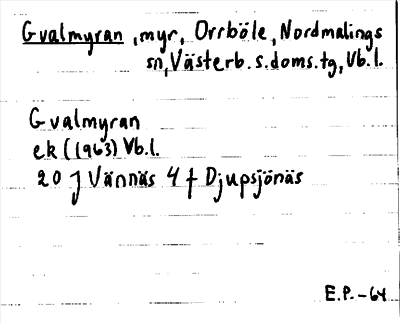 Gvalmyran, myr, Orrböle, Nordmalings
sn, Västerb. s. doms. tg, Vb. l.
Gvalmyran
ek (1963) Vb. l.
20 J Vännäs 4 f Djupsjönäs
E.P. -64